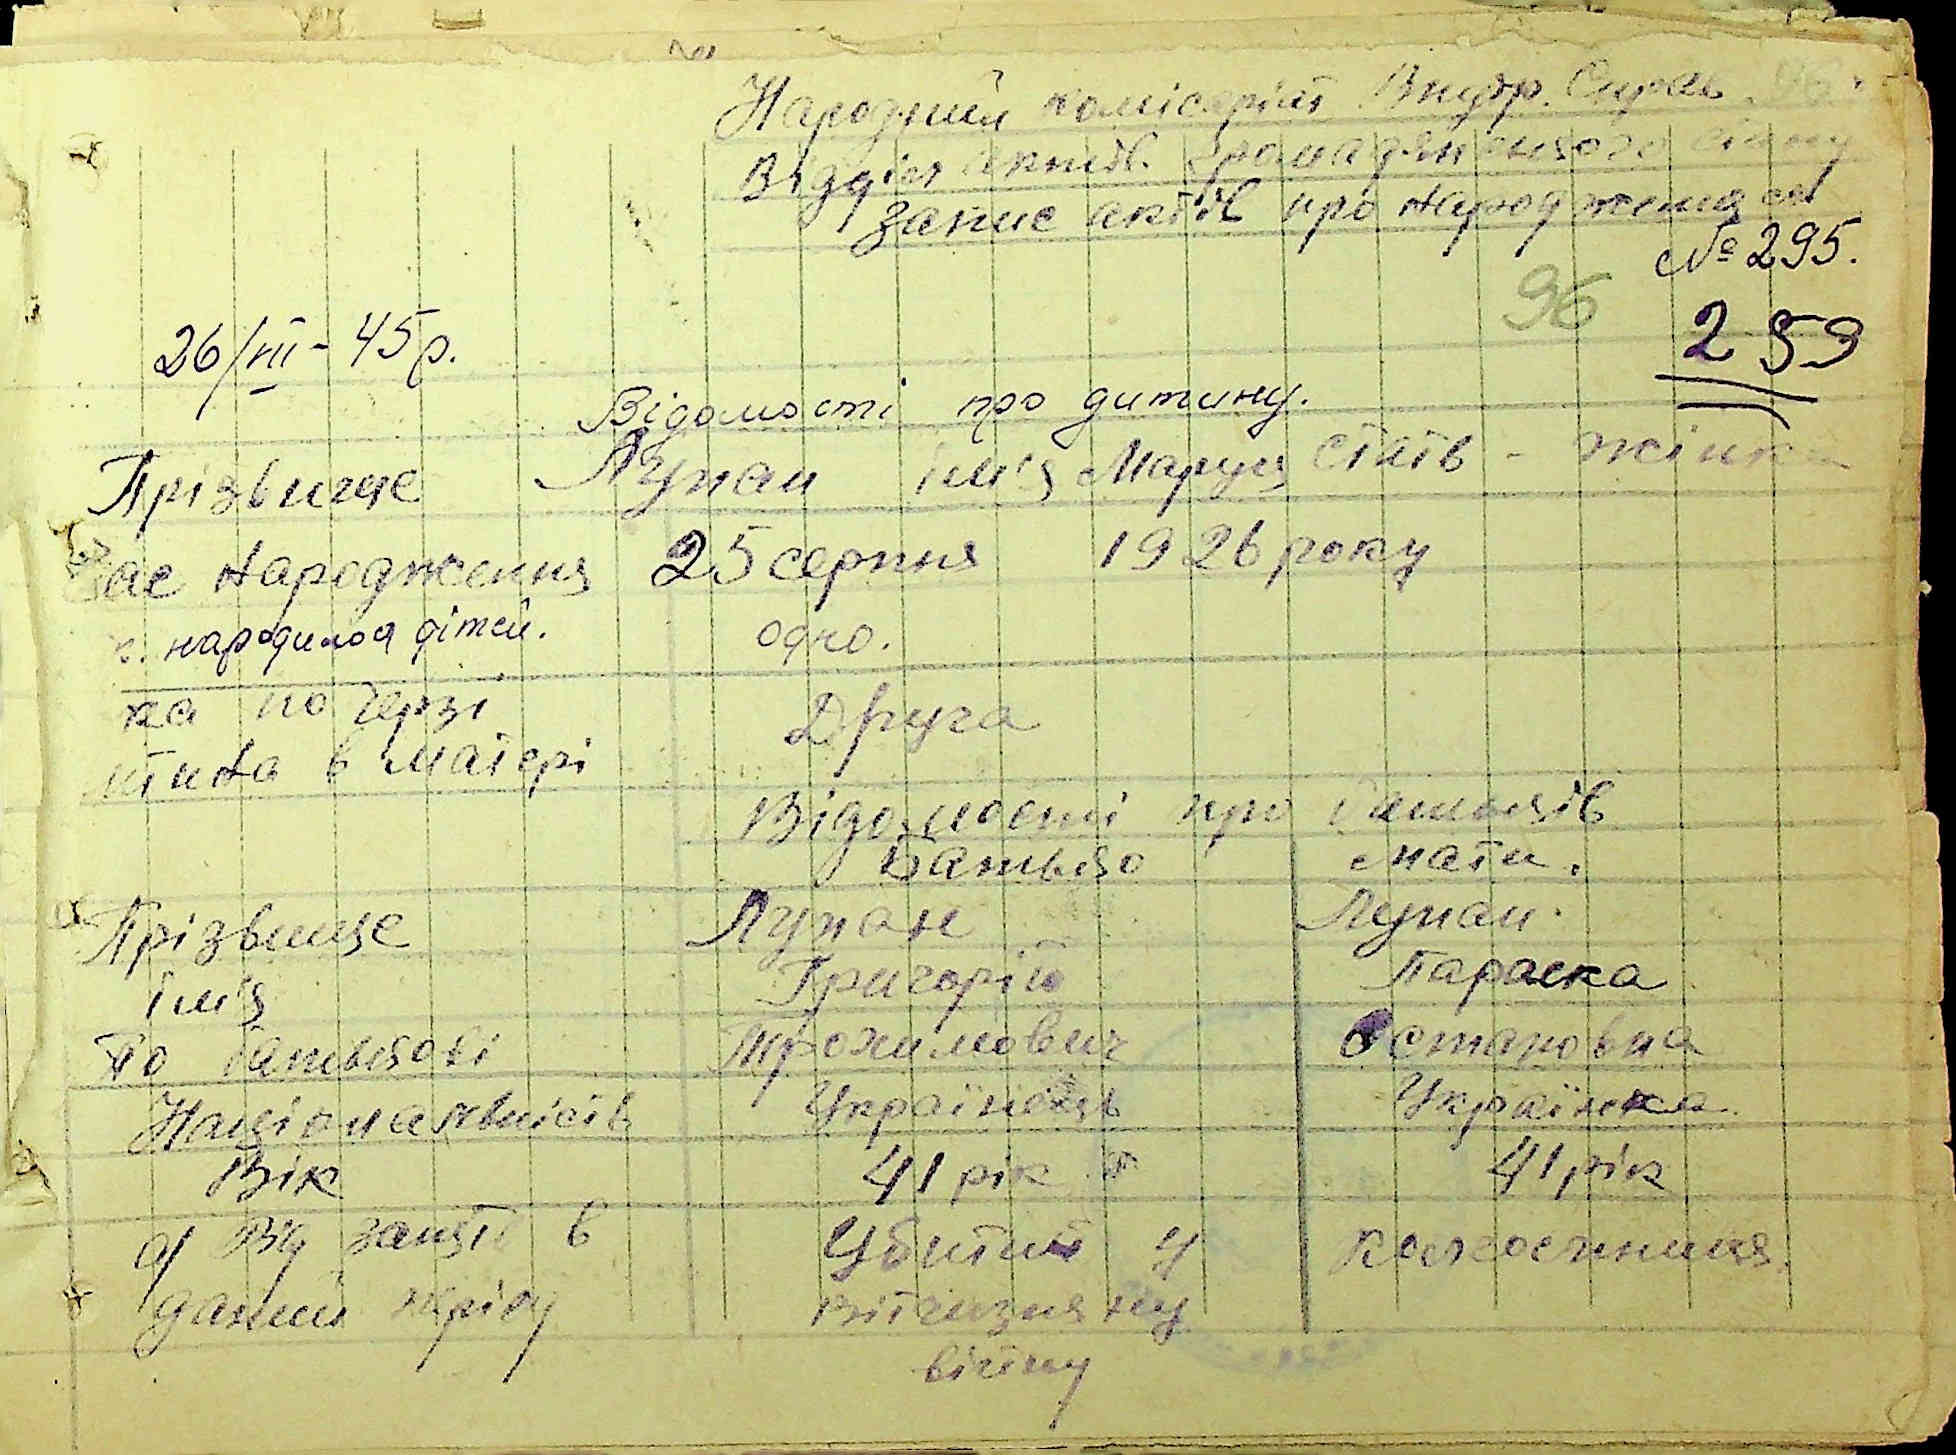 Народний комісаріят Внутр. Справ.
Відділ актів громадянського стану
запис актів про народження
№ 295.
96
259
26/III - 45 р.
Відомості про дитину.
Прізвище Лупан ім'я Маруся стать - жінка
час народження 25 серпня 1926 року
народилося дітей. одно.
ка по черзі Друга
тина в матері
Відомості про батьків
Батько мати.
Прізвище Лупан Лупан.
ім'я Григорій Параска
По батькові Трохимович Остаповна
Національність Українець Українка
Вік 41 рік 41 рік
а) Від занять в Убитий у колгоспниця.
даний період вітчизняну
війну